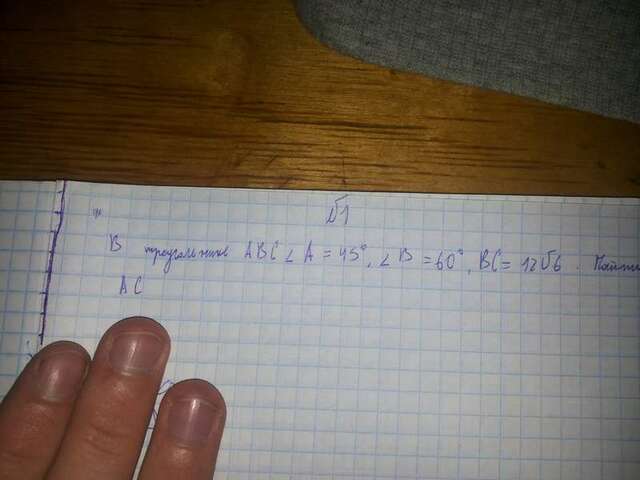 №1
В треугольнике ABC ∠ A = 45°, ∠ B = 60°, BC = 12√6. Найти
AC